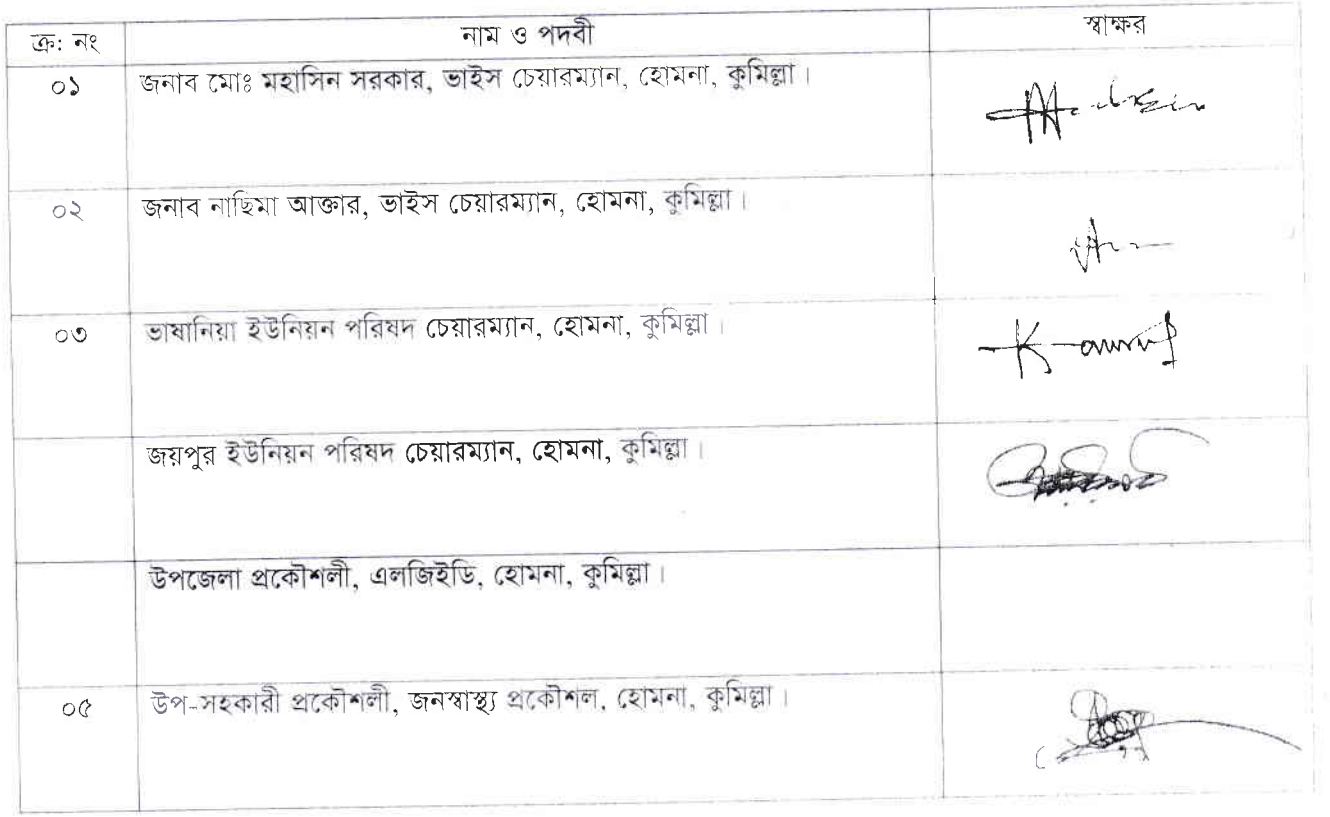 ক্র: নং নাম ও পদবী স্বাক্ষর
০১ জনাব মোঃ মহাসিন সরকার, ভাইস চেয়ারম্যান, হোমনা, কুমিল্লা।
০২ জনাব নাছিমা আক্তার, ভাইস চেয়ারম্যান, হোমনা, কুমিল্লা।
০৩ ভাষানিয়া ইউনিয়ন পরিষদ চেয়ারম্যান, হোমনা, কুমিল্লা।
জয়পুর ইউনিয়ন পরিষদ চেয়ারম্যান, হোমনা, কুমিল্লা।
উপজেলা প্রকৌশলী, এলজিইডি, হোমনা, কুমিল্লা।
০৫ উপ-সহকারী প্রকৌশলী, জনস্বাস্থ্য প্রকৌশল, হোমনা, কুমিল্লা।